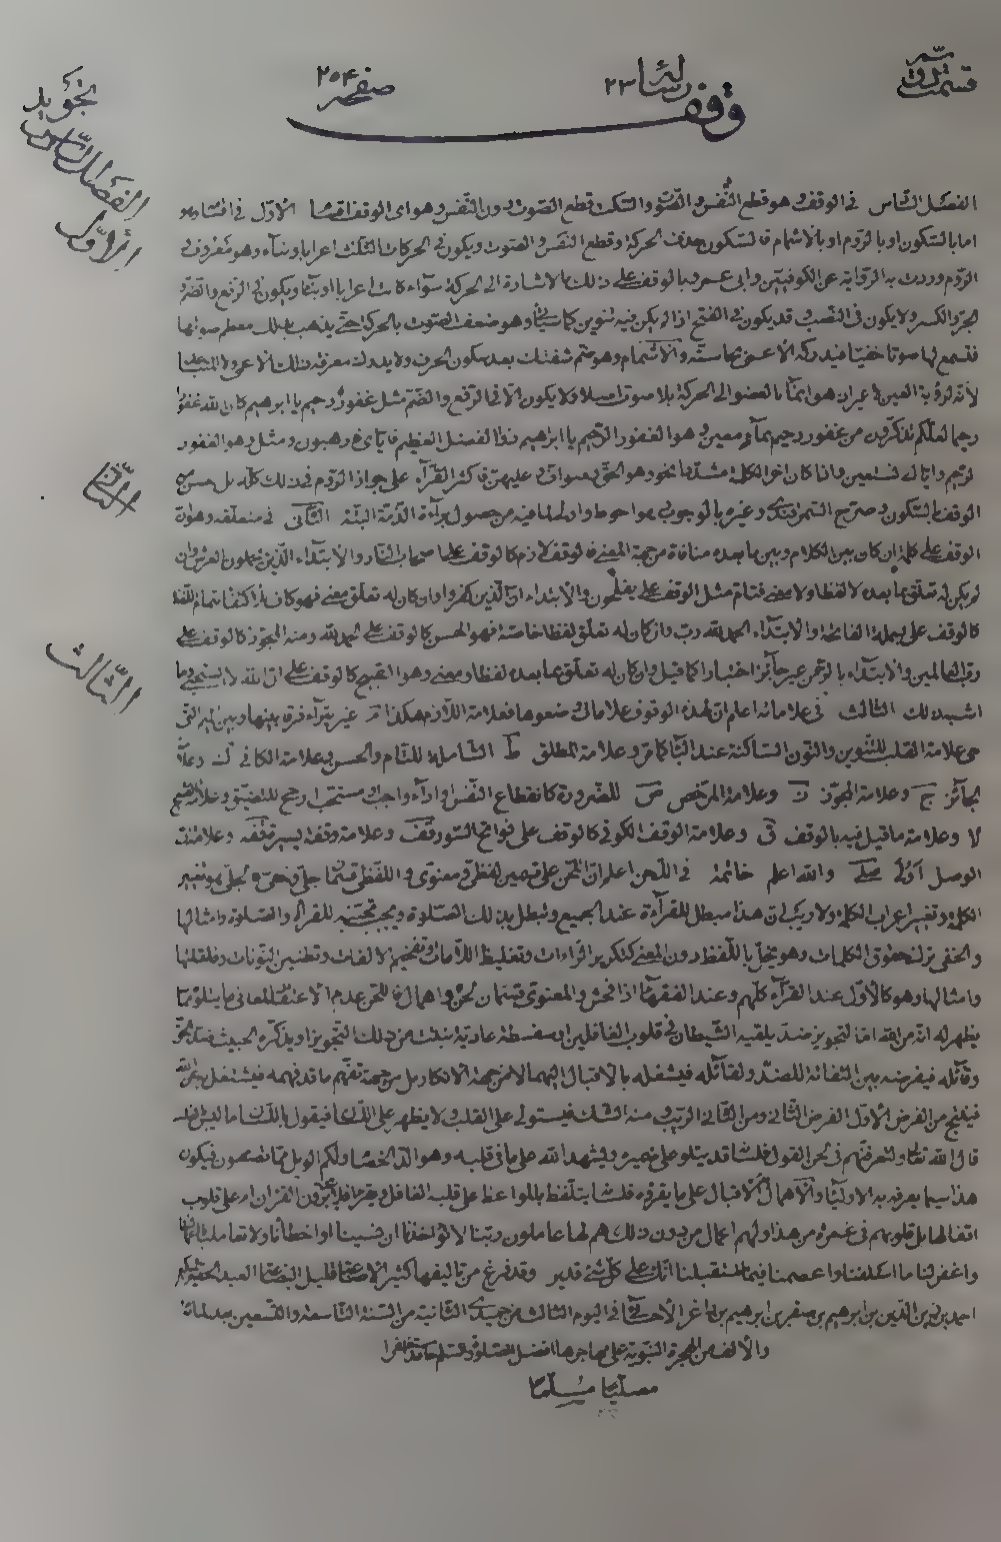 قسمت
رسالة ٢٣
صفحه ٢٥٤
وقف
التجويد
الفصل السادس
الأول
الثانى
الثالث
الفصل السادس فى الوقف وهو قطع النفس والصوت والسكت قطع الصوت دون النفس وهو اى الوقف اقسام الاول فى اقسامه وهو
اما بالسكون او بالروم او بالاشمام فالسكون حذف الحركة وقطع النفس والصوت ويكون فى الحركات الثلث اعرابا وبناء وهو معروف
الروم ووردت به الرواية عن الكوفيين وابى عمرو بالوقف على ذلك بالاشارة الى الحركة سواء كانت اعرابا او بناء ويكون فى الرفع والضم
الجر والكسر ولا يكون فى النصب وقد يكون فى الفتح اذا لم يكن فيه تنوين كما سيأتى وهو ضعف الصوت بالحركة حتى يذهب بذلك معظم صوتها
فتسمع لها صوتا خفيا فيدركه الاعمى بحاسته والاشمام وهو ضم شفتيك بعد سكون الحرف ولا يدرك معرفة ذلك الاعمى
لانه لرؤية العين غير ان هو ايماء بالعضو الى الحركة بلا صوت اصلا ولا يكون الا فى الرفع والضم مثل غفور رحيم يا ابرهيم كان الله غفورا
رحيما لعلكم تذكرون من غفور رحيم بماء معين وهو الغفور الرحيم يا ابرهيم ذو الفضل العظيم فاياى فارهبون ومثل وهو الغفور
الرحيم واياك نستعين واذا كان اخر الكلمة مشددا نحو وهو الحق صواف عليهن فاكثر القراء على جواز الروم فى ذلك كله بل حسن مع
الوقف بالسكون وصرح وغيره بالوجوب هو احوط واولى لما فيه من حصول براءة الذمة البتة الثانى فى متعلقه وهو ان
الوقف على كلمة ان كان بين الكلام وبين ما بعده منافاة من جهة المعنى فالوقف لازم كالوقف على اصحاب النار والابتداء الذين يحملون العرش وان
لم يكن له تعلق بما بعده لا لفظا ولا معنى فتام مثل الوقف على يفلحون والابتداء ان الذين كفروا وان كان له تعلق معنى فهو كاف
كالوقف على بسملة الفاتحة والابتداء الحمد لله رب وان كان له تعلق لفظا خاصة فهو الحسن كالوقف على الحمد لله ومنه المجوز كالوقف على
رب العالمين والابتداء بالرحمن غير جائز اختيارا كما قيل وان كان له تعلق بما بعده لفظا ومعنى وهو القبيح كالوقف على ان الله لا يستحيى وما
اشبه ذلك الثالث فى علاماته اعلم ان لهذه الوقوف علامات وضعوها فعلامة اللازم هكذا م غير بتراء فرقا بينها وبين الميم التى
هى علامة القلب للتنوين والنون الساكنة عند الباء كما مر وعلامة المطلق ط الشاملة للتام والحسن وعلامة الكافى ك وعلامة
الجائز ج وعلامة المجوز ز وعلامة المرخص ص للضرورة كانقطاع النفس واداء واجب ومستحب ارجح للتضيق وعلامة القبيح
لا وعلامة ما قيل فيه بالوقف ق وعلامة الوقف الكوفى كالوقف على فواتح السور قف وعلامة وقفة يسيرة قفة وعلامة
الوصل اولى صلى والله اعلم خاتمة فى اللحن اعلم ان اللحن على قسمين لفظى ومعنوى واللفظى قسمان جلى وخفى فالجلى هو تغيير
الكلمة وتغيير اعراب الكلمة ولا ريب ان هذا مبطل للقراءة عند الجميع وتبطل بذلك الصلوة ويجب تجنبه للقراءة والصلوة وامثالها
والخفى ترك حقوق الكلمات وهو مخل باللفظ دون المعنى كتكرير الراءات وتغليظ اللامات وتفخيم الالفات وتطنين النونات وقلقلتها
وامثالها وهو كالاول عند القراء كلهم وعند الفقهاء اذا فحش والمعنوى قسمان لحن واهمال فاللحن عدم الاعتقاد للمعانى ما يتلو مما
يظهر له انه من الله اما لتجويز ضد يلقيه الشيطان فى قلوب الغافلين او سفسطة عادية نبتت من ذلك التجويز او يذكره الخبيث ضد الحق
وقائله فيفرضه بين التفاته للضد ولقائله فيشغله بالاقبال اليهما لا من جهة الانكار بل من جهة تفهم ما قد فهمه فيشتغل
فينتج من الفرض الاول الفرض الثانى ومن الثانى الريب ومنه الشك فيستولى على القلب ولا يظهر على اللسان فيقول باللسان ما ليس
قال الله تعالى ولتعرفنهم فى لحن القول فلسانه قد يتلو على ضميره ويشهد الله على ما فى قلبه وهو الد الخصام ولكم الويل مما تصفون فيكون
هذا سيما يعرفه به الاولياء والاهمال الاقبال على ما يقرؤه فلسانه يتلفظ بالمواعظ على قلبه الغافل وحق افلا يتدبرون القران ام على قلوب
اقفالها بل قلوبهم فى غمرة من هذا ولهم اعمال من دون ذلك هم لها عاملون ربنا لا تؤاخذنا ان نسينا او اخطأنا ولا تعاملنا
واغفر لنا ما اسلفنا واعصمنا فيما استقبلنا انك على كل شئ قدير وقد فرغ من تاليفها كثير الاضاعة قليل البضاعة العبد الحقير
احمد بن زين الدين بن ابراهيم بن صقر بن ابرهيم بن داغر الاحسائى فى اليوم الثالث من جمادى الثانية من السنة التاسعة والتسعين بعد المائة
والالف من الهجرة النبوية على مهاجرها افضل الصلوة والسلم حامدا
مصليا مسلما